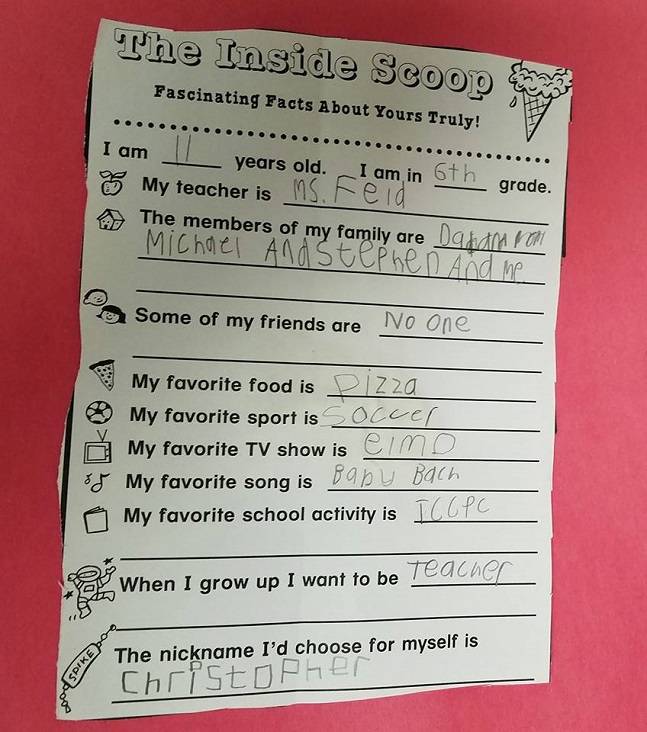 The Inside Scoop
Fascinating Facts About Yours Truly!
I am 11 years old. I am in 6th grade.
My teacher is Ms. Feld
The members of my family are Dad and Mom
Michael And Stephen And me
Some of my friends are No one
My favorite food is pizza
My favorite sport is Soccer
My favorite TV show is elmo
My favorite song is Baby Bach
My favorite school activity is
When I grow up I want to be Teacher
SPIKE
The nickname I'd choose for myself is
Christopher